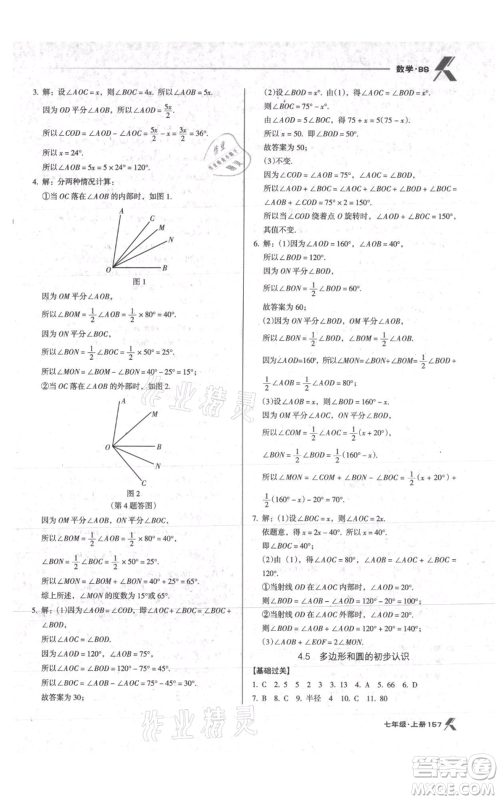 数学·BS
3. 解：设∠AOC=x，则∠BOC=4x，∠AOB=5x.
因为 OD 平分∠AOB，所以∠AOD=5x/2.
所以∠COD=∠AOD-∠AOC=5x/2-x=3x/2=36°.
所以 x=24°.
所以∠AOB=5x=5×24°=120°.
4. 解：分两种情况计算：
①当 OC 落在∠AOB 的内部时，如图 1.
A
C
M
N
O
B
图 1
因为 OM 平分∠AOB，
所以∠BOM=1/2∠AOB=1/2×80°=40°.
因为 ON 平分∠BOC，
所以∠BON=1/2∠BOC=1/2×40°=20°.
所以∠MON=∠BOM-∠BON=40°-20°=20°.
②当 OC 落在∠AOB 的外部时，如图 2.
A
M
O
B
N
C
图 2
（第 4 题答图）
因为 OM 平分∠AOB，
所以∠BOM=1/2∠AOB=1/2×80°=40°.
因为 ON 平分∠BOC，
所以∠BON=1/2∠BOC=1/2×40°=20°.
所以∠MON=∠BOM+∠BON=40°+20°=60°.
综上所述，∠MON 的度数是 20°或 60°.
5. 解：(1)因为∠AOB=∠COD，即∠AOC+∠BOC=∠BOC+∠BOD，
所以∠BOD=∠AOC=30°.
故答案为 30；
(2)设∠AOC=2x°，则∠BOC=3x°.
则∠BOC=75°-x°.
所以∠COD=75°.
所以∠AOD=∠AOB+∠BOD=75°+30°=105°.
所以 x=50.
故答案为 50.
(3)不变.
因为∠COD=∠AOB=75°，∠AOC=∠BOD，
所以∠AOD+∠BOC=75°+∠AOC+∠BOC=75°+75°=150°.
当∠COD 绕着点 O 旋转时，∠AOD+∠BOC=150°，
其值不变.
6. 解：(1)因为∠AOD=160°，∠AOB=40°，
所以∠BOD=160°-40°=120°.
因为 ON 平分∠BOD，
所以∠BON=1/2∠BOD=60°.
故答案为 60；
(2)因为 OM 平分∠AOB，ON 平分∠BOD，
所以∠MOB=1/2∠AOB，∠BON=1/2∠BOD.
因为∠AOD=160°，
所以∠MON=∠MOB+∠BON=1/2∠AOB+1/2∠BOD=1/2∠AOD=80°；
(3)设∠AOB=x，则∠BOD=160°-x.
所以∠COM=1/2∠AOC=1/2(x+20°)，
∠BON=1/2∠BOD=1/2(160°-x).
所以∠MON=∠COM+∠BON-∠BOC=1/2(x+20°)+1/2(160°-x)-20°=70°.
7. 解：(1)设∠AOC=x，则∠BOC=2x.
依题意，得 x+2x=120°，所以 x=40°.
即∠BOC=40°.
(2)由(1)得，∠AOB=∠AOC+∠BOC=120°.
①当射线 OD 在∠AOB 内部时，
则∠BOD=∠AOB-∠AOD=120°-20°=100°；
②当射线 OD 在∠AOB 外部时，
则∠BOD=∠AOB+∠AOD=120°+20°=140°.
综上，∠BOD 的度数为 100°或 140°.
4.5 多边形和圆的初步认识
【基础过关】
1. C 2. D 3. A 4. C 5. C 6. B
7. B 8. C 9. 半径 4
七年级·上册 157
作业精灵